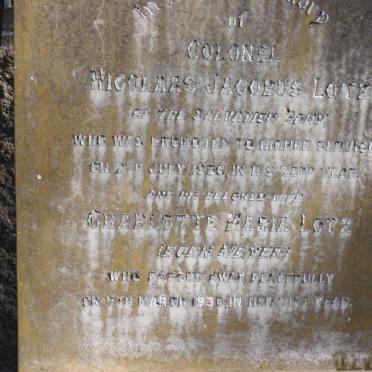 In
of
COLONEL
NICOLAAS JACOBUS LOTZ
OF THE SALVATION ARMY
WHO WAS PROMOTED TO HIGHER SERVICE
ON 7TH JULY IN HIS YEAR.
AND HIS BELOVED WIFE
CHARLOTTE MARIA LOTZ
WHO PASSED AWAY PEACEFULLY
ON 7TH MARCH IN HER 71ST YEAR.